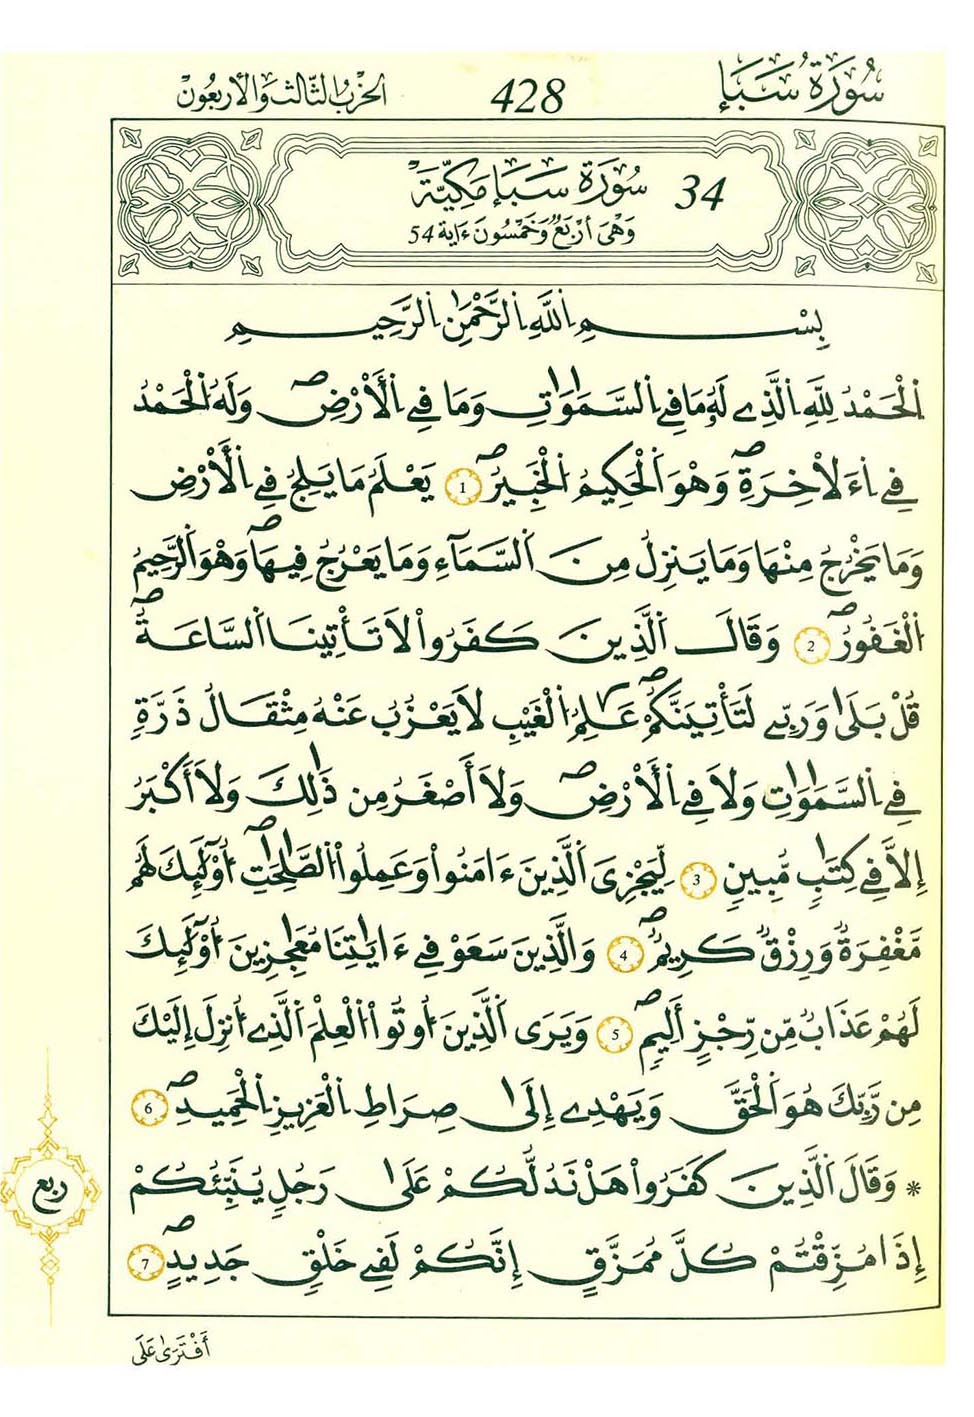 سُورَةُ سَبَإٍ 428 الحِزْبُ الثَّالِثُ وَالأَرْبَعُونَ
34 سُورَةُ سَبَإٍ مَكِّيَّةٌ
وَهْيَ أَرْبَعٌ وَخَمْسُونَ ءَايَة 54
بِسْمِ اِ۬للَّهِ اِ۬لرَّحْمَٰنِ اِ۬لرَّحِيمِ
اَ۬لْحَمْدُ لِلهِ اِ۬لذِے لَهُۥ مَا فِے اِ۬لسَّمَٰوَٰتِ وَمَا فِے اِ۬لَارْضِۖ وَلَهُ اُ۬لْحَمْدُ
فِے اِ۬ءَلَاخِرَةِۖ وَهُوَ اَ۬لْحَكِيمُ اُ۬لْخَبِيرُۖ 1 يَعْلَمُ مَا يَلِجُ فِے اِ۬لَارْضِ
وَمَا يَخْرُجُ مِنْهَا وَمَا يَنزِلُ مِنَ اَ۬لسَّمَآءِ وَمَا يَعْرُجُ فِيهَاۖ وَهُوَ اَ۬لرَّحِيمُ
اُ۬لْغَفُورُۖ 2 وَقَالَ اَ۬لذِينَ كَفَرُواْ لَا تَأْتِينَا اَ۬لسَّاعَةُۖ
قُلْ بَلَىٰ وَرَبِّے لَتَأْتِيَنَّكُمْۖ عَٰلِمُ اُ۬لْغَيْبِ لَا يَعْزُبُ عَنْهُ مِثْقَالُ ذَرَّةٖ
فِے اِ۬لسَّمَٰوَٰتِ وَلَا فِے اِ۬لَارْضِۖ وَلَآ أَصْغَرُ مِن ذَٰلِكَ وَلَآ أَكْبَرُ
إِلَّا فِے كِتَٰبٖ مُّبِينٖ 3 لِّيَجْزِيَ اَ۬لذِينَ ءَامَنُواْ وَعَمِلُواْ اُ۬لصَّٰلِحَٰتِۖ أُوْلَٰٓئِكَ لَهُم
مَّغْفِرَةٞ وَرِزْقٞ كَرِيمٞۖ 4 وَالذِينَ سَعَوْ فِےٓ ءَايَٰتِنَا مُعَٰجِزِينَ أُوْلَٰٓئِكَ
لَهُمْ عَذَابٞ مِّن رِّجْزٍ أَلِيمٖۖ 5 وَيَرَى اَ۬لذِينَ أُوتُواْ اُ۬لْعِلْمَ اَ۬لذِےٓ أُنزِلَ إِلَيْكَ
مِن رَّبِّكَ هُوَ اَ۬لْحَقَّ وَيَهْدِےٓ إِلَىٰ صِرَٰطِ اِ۬لْعَزِيزِ اِ۬لْحَمِيدِۖ 6
* وَقَالَ اَ۬لذِينَ كَفَرُواْ هَلْ نَدُلُّكُمْ عَلَىٰ رَجُلٖ يُنَبِّئُكُمُۥٓ
ربع
إِذَا مُزِّقْتُمْ كُلَّ مُمَزَّقٍ إِنَّكُمْ لَفِے خَلْقٖ جَدِيدٍۖ 7
أَفْتَرَىٰ عَلَى